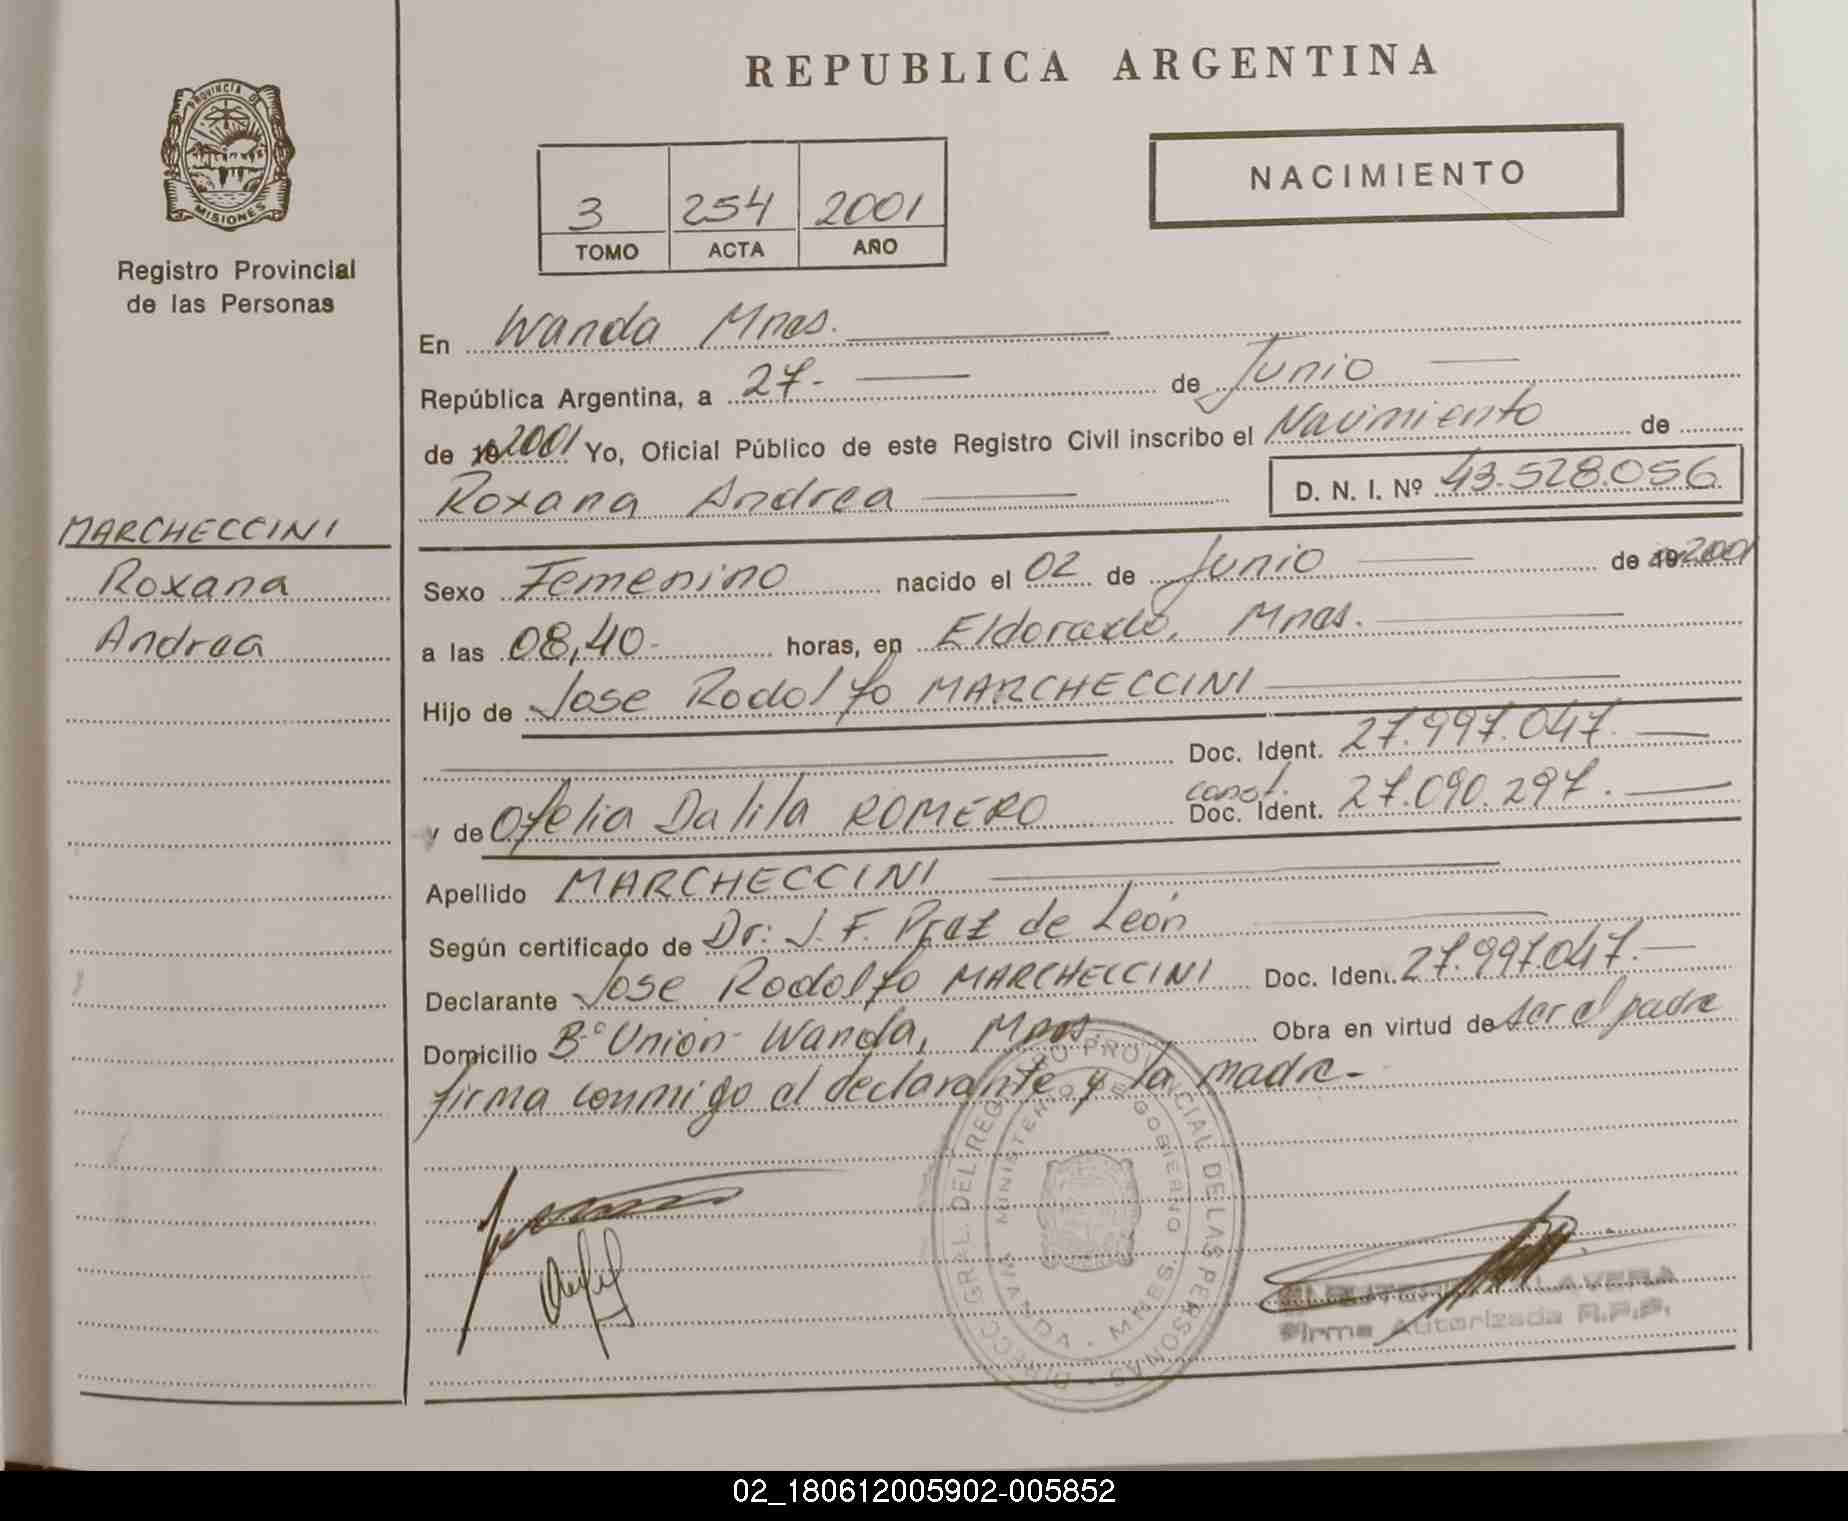 REPUBLICA ARGENTINA
PROVINCIA DE
MISIONES
Registro Provincial
de las Personas
NACIMIENTO
3 254 2001
TOMO ACTA AÑO
En Wanda Mnes.
República Argentina, a 27- de Junio
de 19 2001 Yo, Oficial Público de este Registro Civil inscribo el Nacimiento de
Roxana Andrea D. N. I. Nº 43.528.056
MARCHECCINI
Roxana
Andrea
Sexo Femenino nacido el 02 de Junio de 19 2001
a las 08,40- horas, en Eldorado, Mnes.
Hijo de Jose Rodolfo MARCHECCINI
Doc. Ident. 27.997.047.
const.
y de Ofelia Dalila ROMERO Doc. Ident. 27.090.297.
Apellido MARCHECCINI
Según certificado de Dr: J. F. Praz de León
Declarante Jose Rodolfo MARCHECCINI Doc. Ident. 27.997.047.
Domicilio Bº Unión- Wanda, Mnes. Obra en virtud de ser el padre
firma conmigo el declarante y la madre-
DIRECC. GRAL. DEL REGISTRO PROVINCIAL DE LAS PERSONAS
MINISTERIO DE GOBIERNO
WANDA - MNES.
TALAVERA
Firma Autorizada R.P.P.
02_180612005902-005852